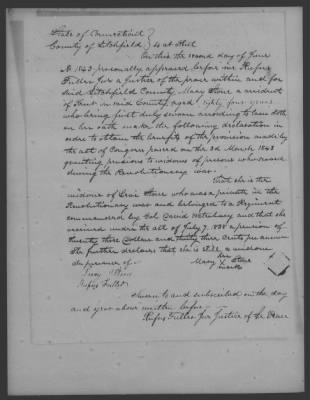 State of Connecticut
County of Litchfield } ss Kent
On this the second day of June
AD 1843 personally appeared before me Rufus
Fuller Jur a Justice of the peace within and for
said Litchfield County Mary Stone a resident
of Kent in said County aged eighty four years
who being first duly sworn according to law doth
on her oath make the following declaration in
order to obtain the benefits of the provision made by
the act of Congress passed on the 3d March 1843
granting pensions to widows of persons who served
during the Revolutionary war.
That she is the
widow of Levi Stone who was a private in the
Revolutionary war and belonged to a Regiment
commanded by Col and that she
received under the act of July 7, 1838 a pension of
twenty three Dollars and thirty three cents per annum
She further declares that she is still a widow
In presence of her
Mary X Stone
mark
Stone
Rufus Fuller
Sworn to and subscribed on the day
and year above written before
Rufus Fuller Jur Justice of the Peace